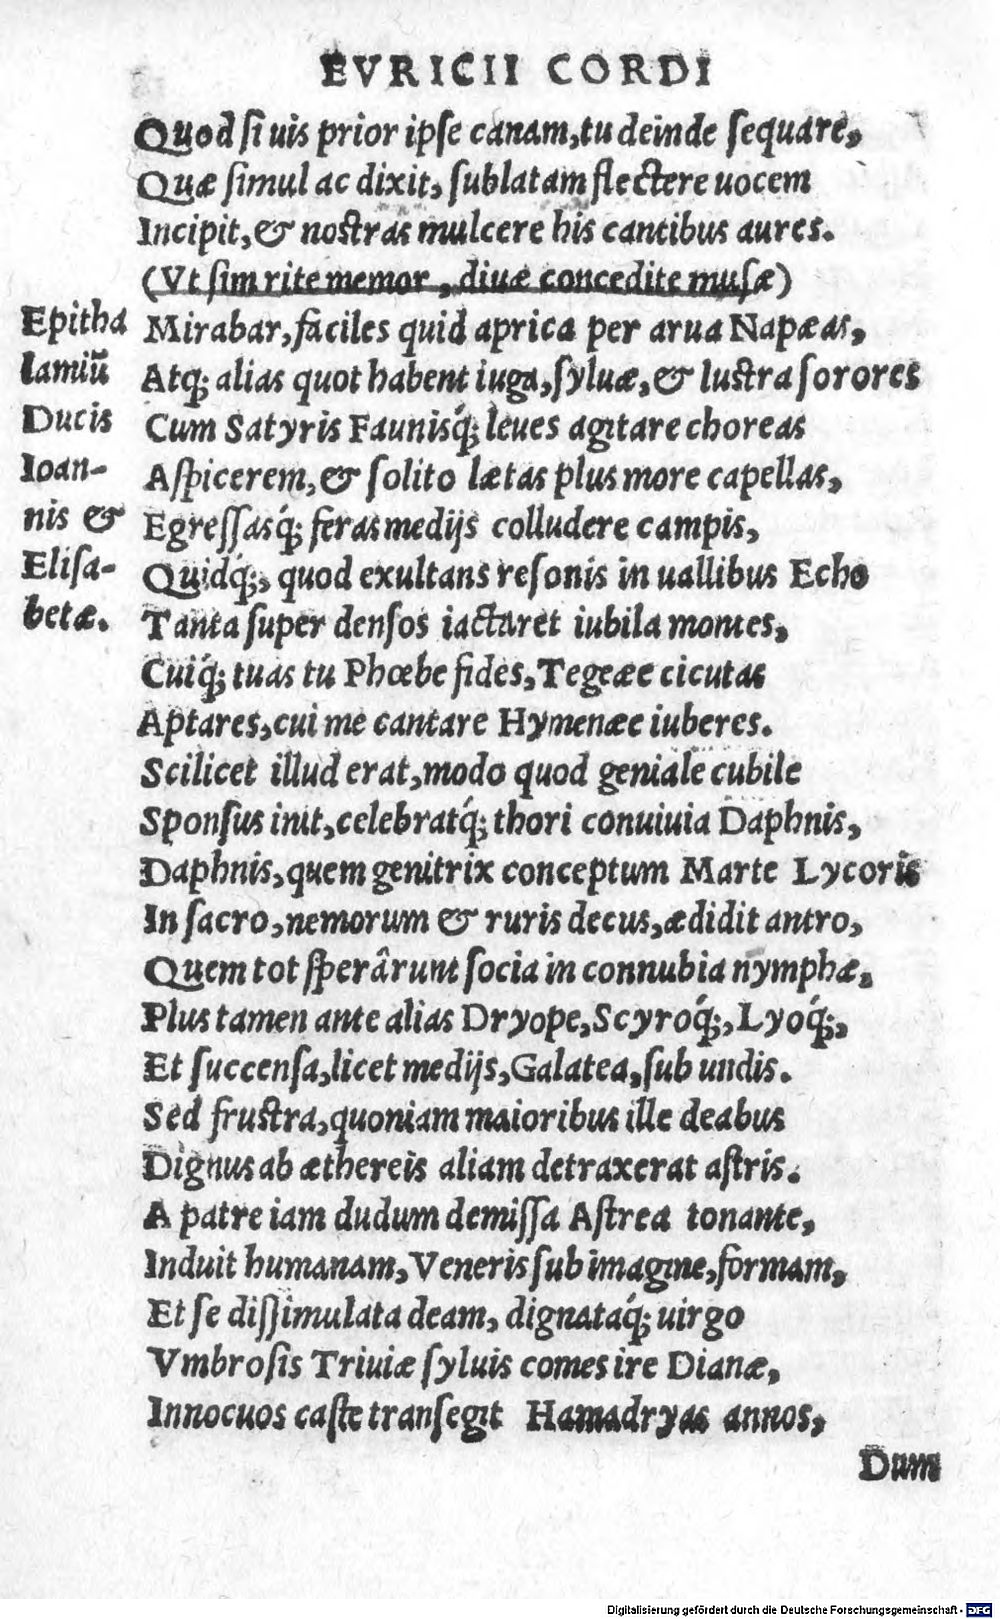 EVRICII CORDI
Quod si uis prior ipse canam, tu deinde sequare,
Quæ simul ac dixit, sublatam flectere uocem
Incipit, & nostras mulcere his cantibus aures.
(Vt sim rite memor, diuæ concedite musæ)
Epitha
lamiū
Ducis
Ioan-
nis &
Elisa-
betæ.
Mirabar, faciles quid aprica per arua Napæas,
Atq; alias quot habent iuga, syluæ, & lustra sorores
Cum Satyris Faunisq́; leues agitare choreas
Aspicerem, & solito lætas plus more capellas,
Egressasq́; feras medijs colludere campis,
Quidq́;, quod exultans resonis in uallibus Echo
Tanta super densos iactaret iubila montes,
Cuiq́; tuas tu Phœbe fides, Tegeæe cicutas
Aptares, cui me cantare Hymenæe iuberes.
Scilicet illud erat, modo quod geniale cubile
Sponsus init, celebratq́; thori conuiuia Daphnis,
Daphnis, quem genitrix conceptum Marte Lycoris
In sacro, nemorum & ruris decus, ædidit antro,
Quem tot sperârunt socia in connubia nymphæ,
Plus tamen ante alias Dryope, Scyroq́;, Lyoq́;,
Et succensa, licet medijs, Galatea, sub undis.
Sed frustra, quoniam maioribus ille deabus
Dignus ab æthereis aliam detraxerat astris.
A patre iam dudum demissa Astrea tonante,
Induit humanam, Veneris sub imagine, formam,
Et se dissimulata deam, dignataq́; uirgo
Vmbrosis Triuiæ syluis comes ire Dianæ,
Innocuos caste transegit Hamadryas annos,
Dum
Digitalisierung gefördert durch die Deutsche Forschungsgemeinschaft - DFG